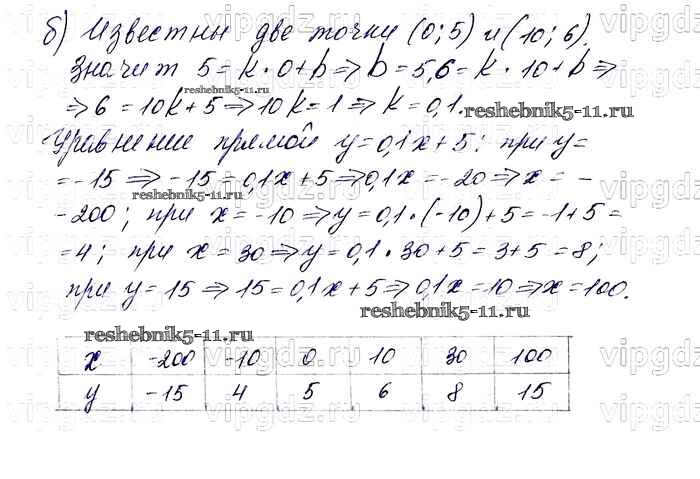 б) Известны две точки (0; 5) и (10; 6).
Значит 5 = k · 0 + b ⇒ b = 5, 6 = k · 10 + b ⇒
reshebnik5-11.ru
⇒ 6 = 10k + 5 ⇒ 10k = 1 ⇒ k = 0,1.
reshebnik5-11.ru
Уравнение прямой y = 0,1x + 5; при y =
= -15 ⇒ -15 = 0,1x + 5 ⇒ 0,1x = -20 ⇒ x = -
reshebnik5-11.ru
-200; при x = -10 ⇒ y = 0,1 · (-10) + 5 = -1 + 5 =
= 4; при x = 30 ⇒ y = 0,1 · 30 + 5 = 3 + 5 = 8;
при y = 15 ⇒ 15 = 0,1x + 5 ⇒ 0,1x = 10 ⇒ x = 100.
reshebnik5-11.ru
reshebnik5-11.ru
x -200 -10 0 10 30 100
y -15 4 5 6 8 15